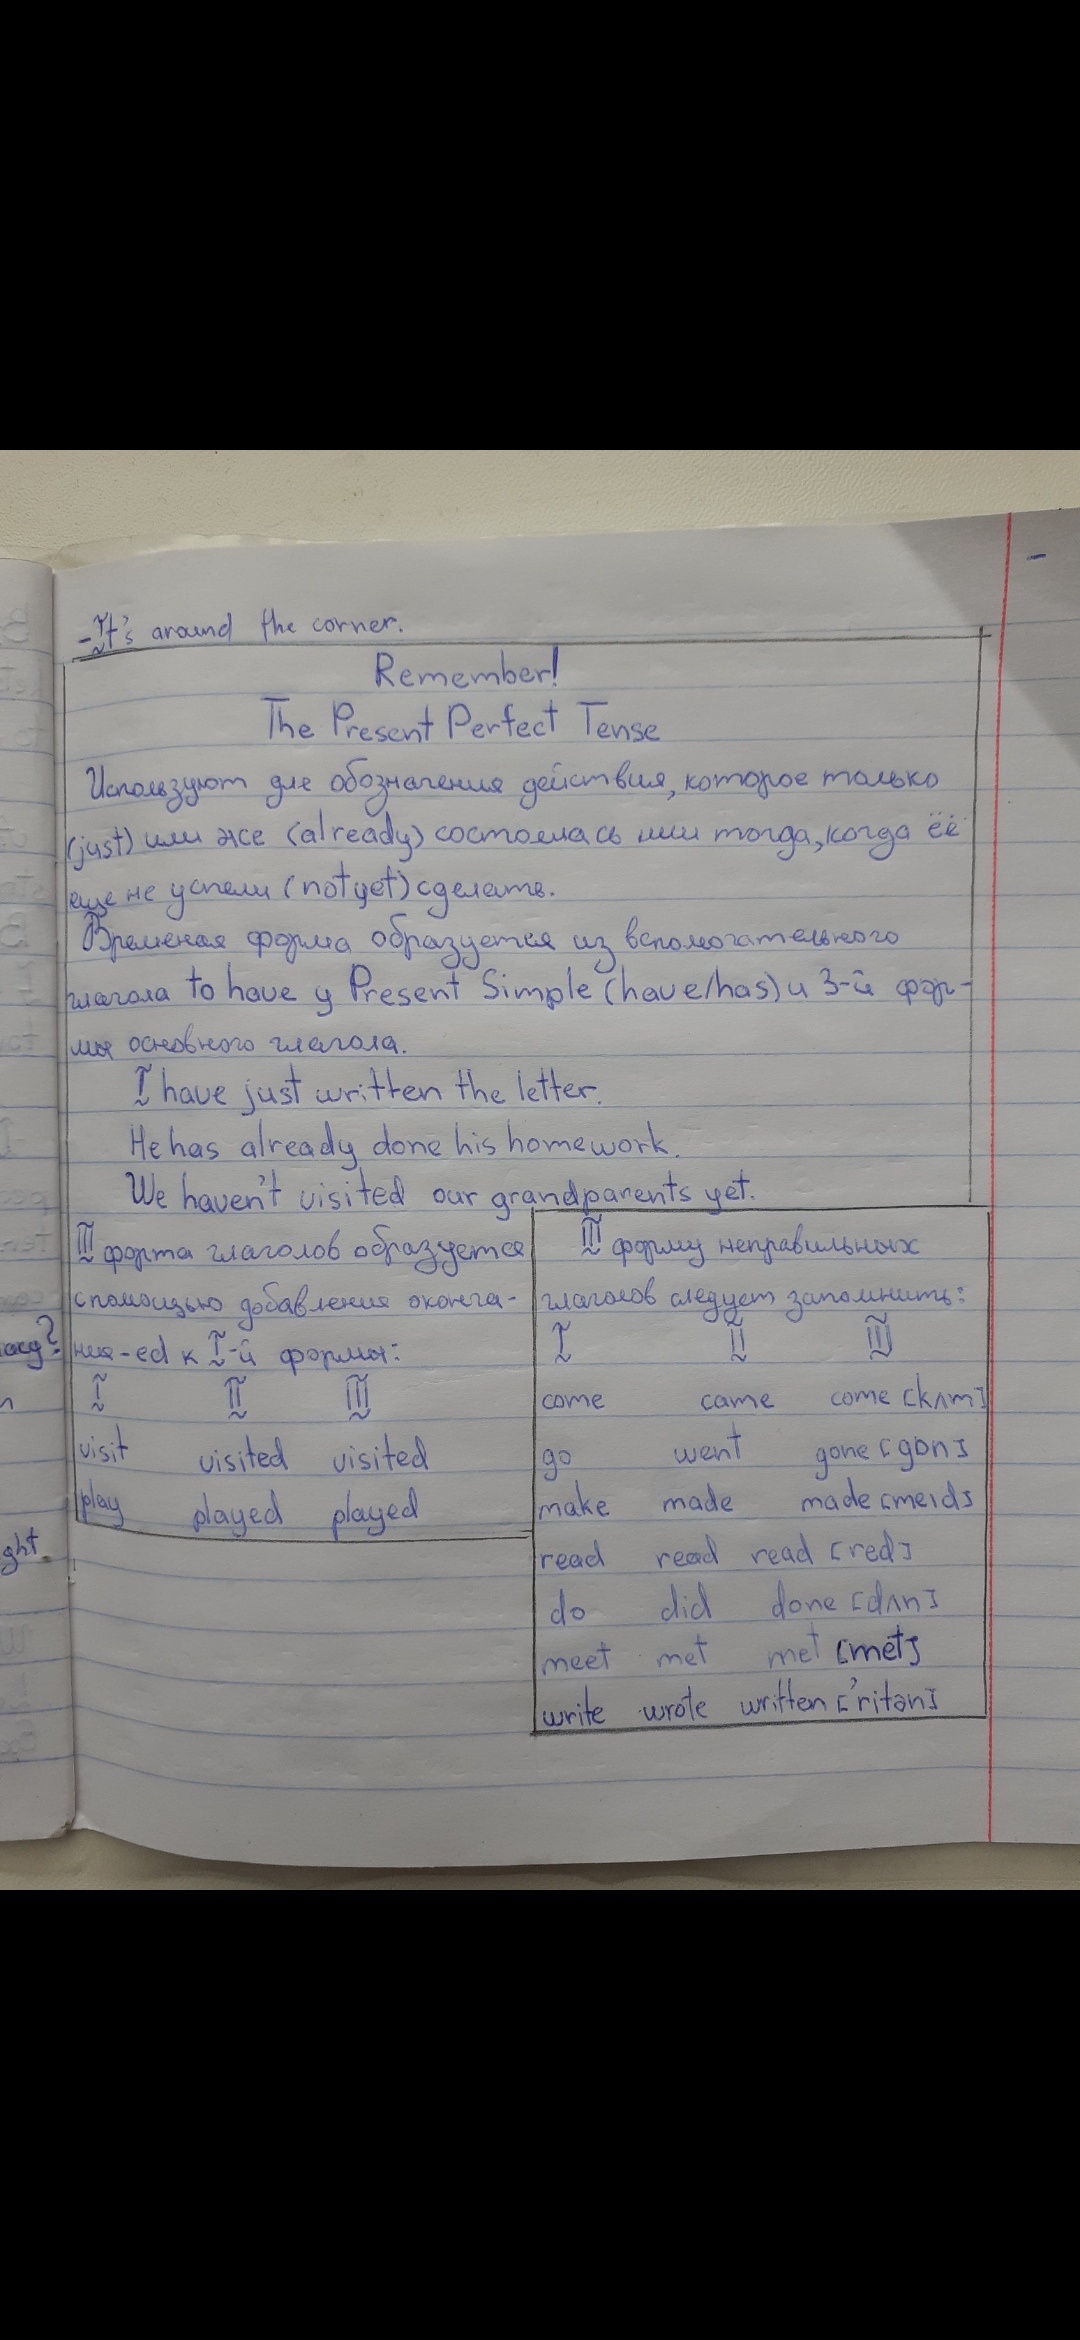 -It's around the corner.
Remember!
The Present Perfect Tense
Используют для обозначения действия, которое только
(just) или же (already) состоялась или тогда, когда её
еще не успели (not yet) сделать.
Временая форма образуется из вспомогательного
глагола to have у Present Simple (have/has) и 3-й фор-
мы основного глагола.
I have just written the letter.
He has already done his homework.
We haven't visited our grandparents yet.
III форта глаголов образуется
с помощью добавления оконча-
ния -ed к I-й формы:
I II III
visit visited visited
play played played
III форму неправильных
глаголов следует запомнить:
I II III
come came come [kʌm]
go went gone [gɒn]
make made made [meɪd]
read read read [red]
do did done [dʌn]
meet met met [met]
write wrote written ['ritən]
ght.